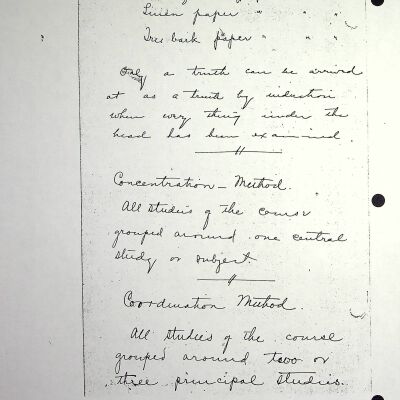 Linen paper " " "
Tree bark paper " " "
Only a truth can be arrived
at as a truth by induction
when every thing under the
head has been examined.
Concentration - Method.
All studies of the course
grouped around one central
study or subject.
Coordination Method.
All studies of the course
grouped around two or
three principal studies.